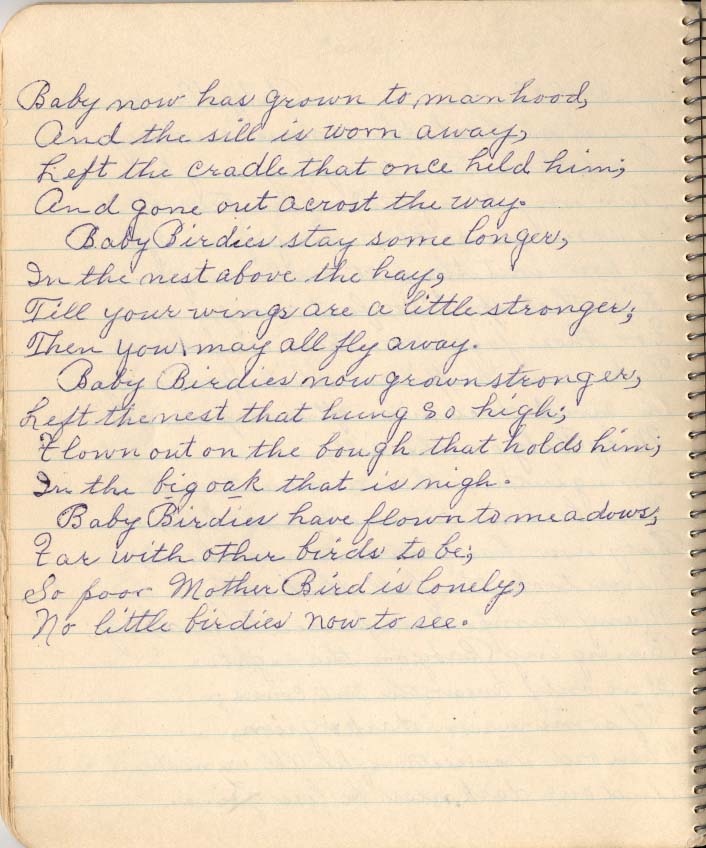 Baby now has grown to manhood,
And the sill is worn away,
Left the cradle that once held him;
And gone out acrost the way.
Baby Birdies stay some longer,
In the nest above the hay,
Till your wings are a little stronger;
Then you may all fly away.
Baby Birdies now grown stronger,
Left the nest that hung so high;
Flown out on the bough that holds him;
In the big oak that is nigh.
Baby Birdies have flown to meadows,
Far with other birds to be;
So poor Mother Bird is lonely,
No little birdies now to see.